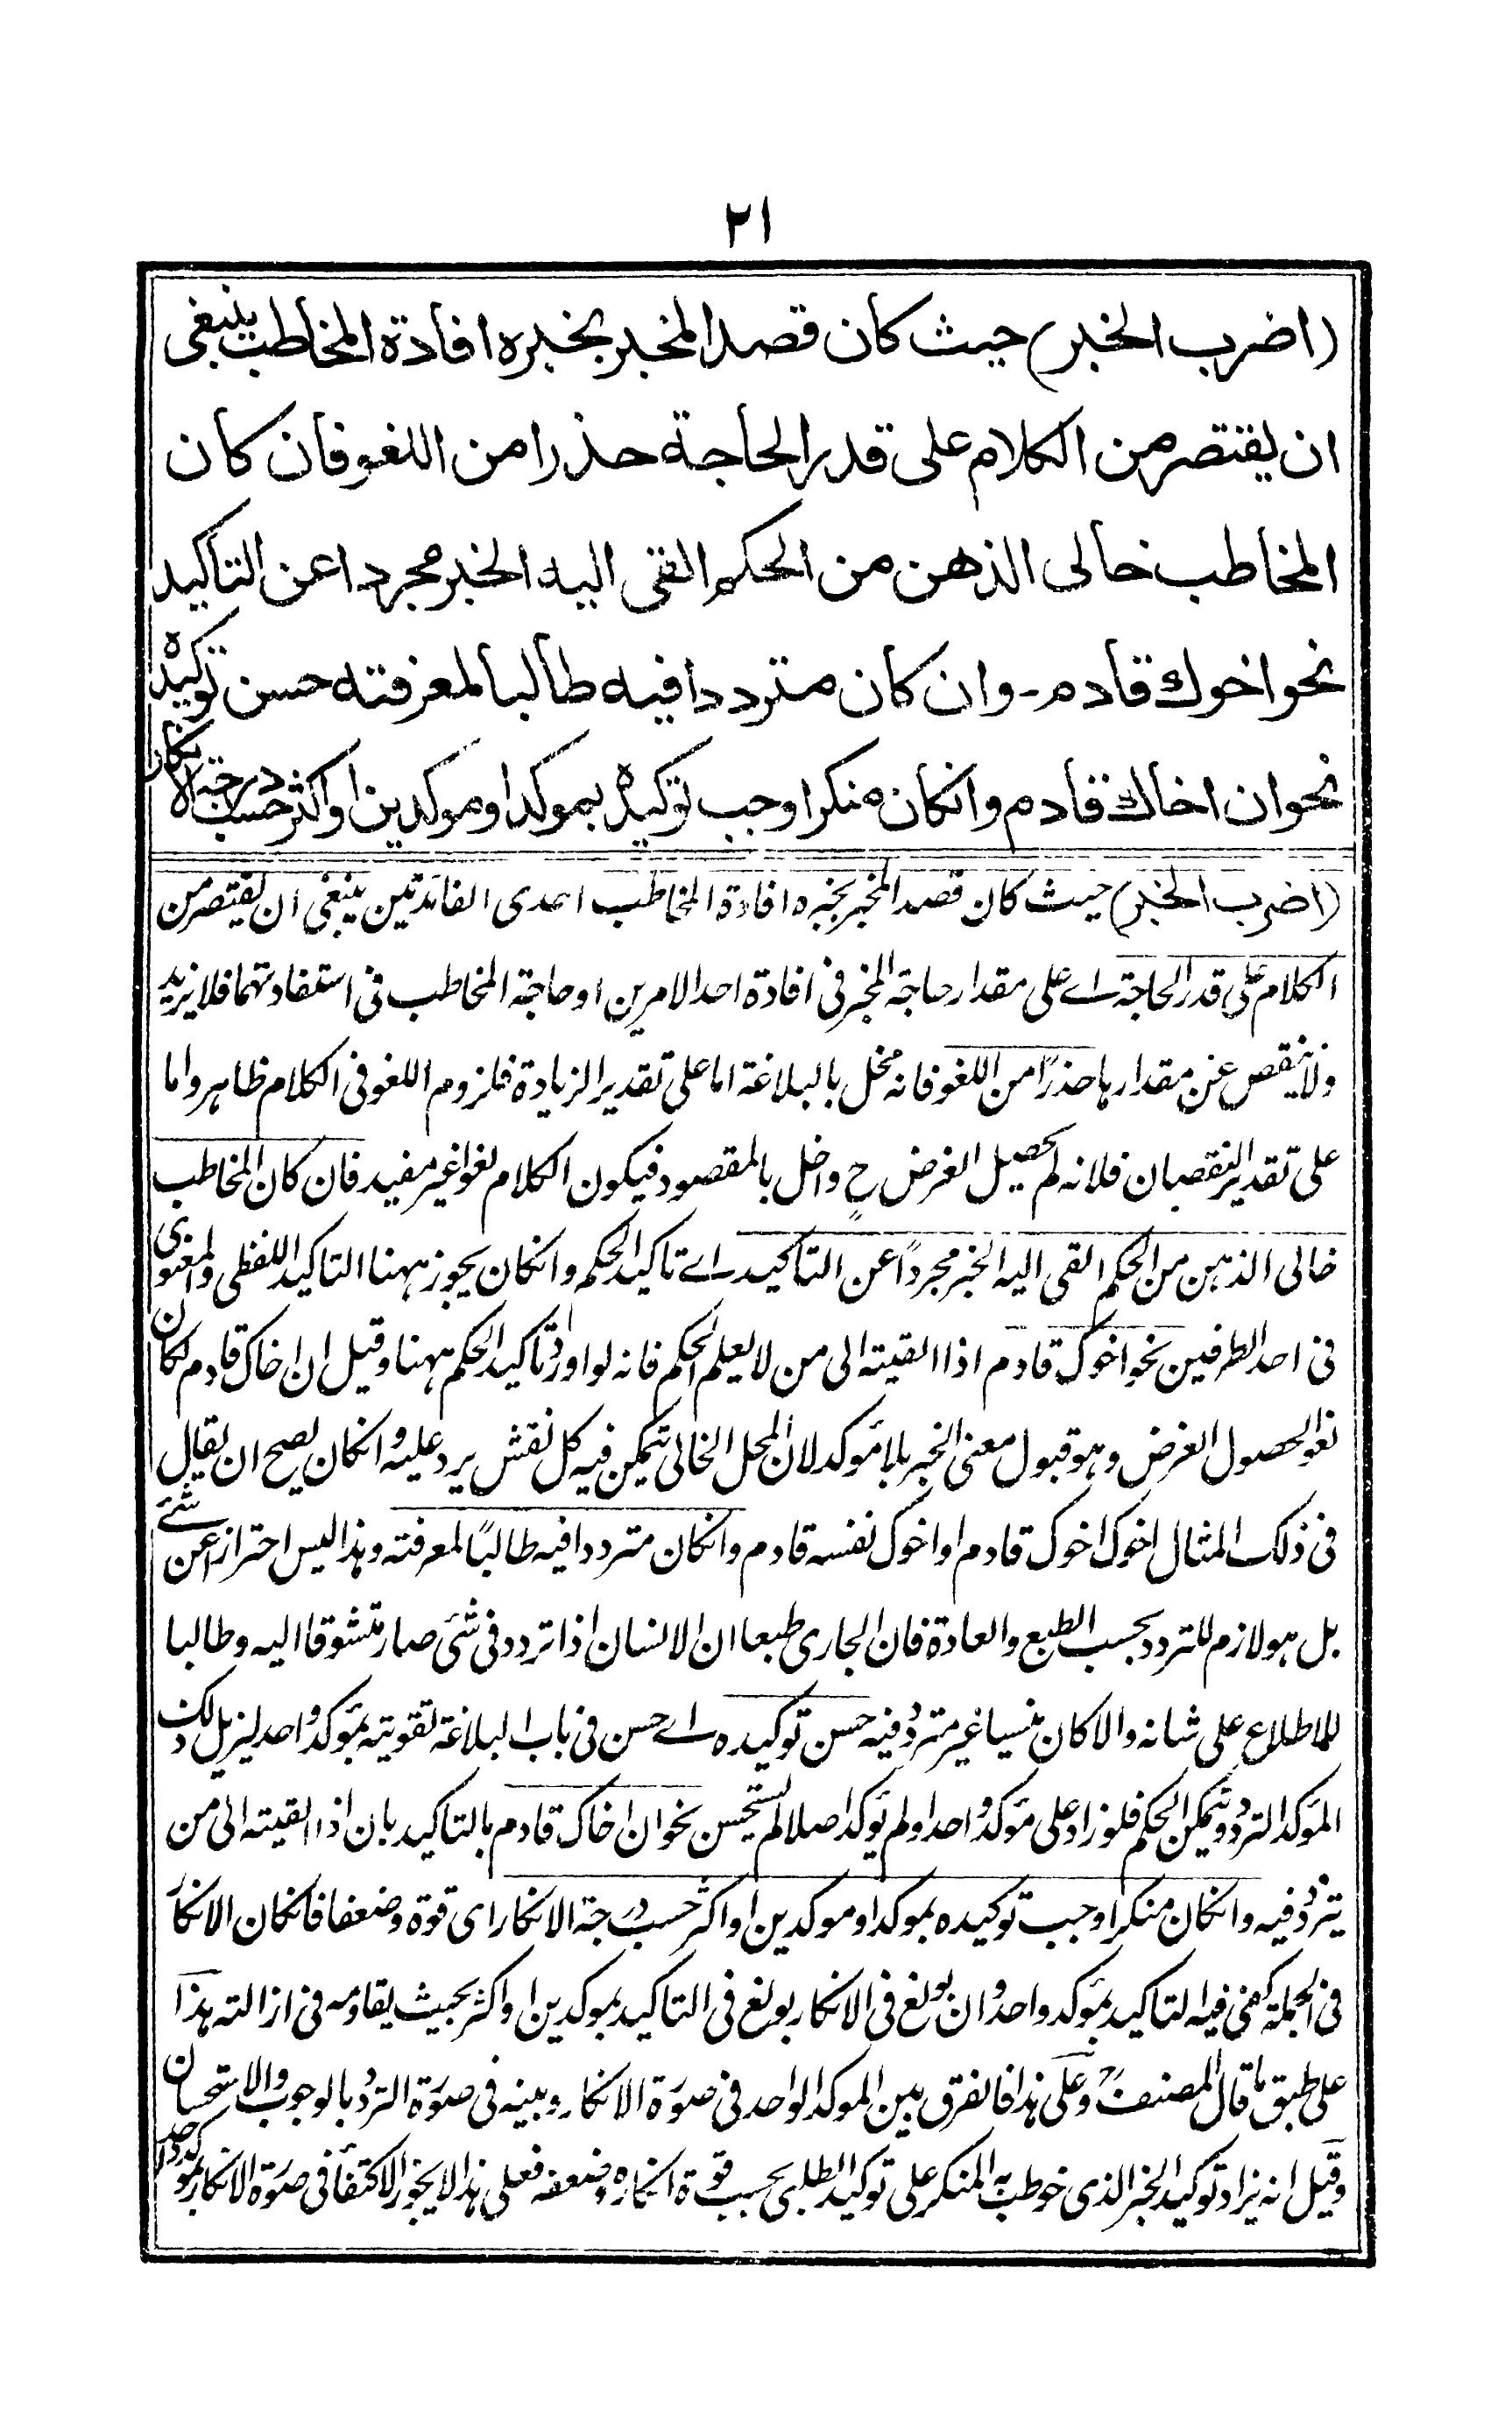 ٢١
(اضرب الخبر) حيث كان قصد المخبر بخبره افادة المخاطب ينبغى
ان يقتصر من الكلام على قدر الحاجة حذرا من اللغو فان كان
المخاطب خالى الذهن من الحكم القى اليه الخبر مجردا عن التاكيد
نحو اخوك قادم - وان كان مترددا فيه طالبا لمعرفته حسن توكيده
نحو ان اخاك قادم وانكان منكرا وجب توكيده بموكد او موكدين او اكثر حسب درجة الانكار
(اضرب الخبر) حيث كان قصد المخبر بخبره افادة المخاطب احدى الفائدتين ينبغى ان يقتصر من
الكلام على قدر الحاجة اے على مقدار حاجة المخبر فى افادة احد الامرين او حاجة المخاطب فى استفادتهما فلا يزيد
ولا ينقص عن مقدارها حذرًا من اللغو فانه مخل بالبلاغة اما على تقدير الزيادة فلزوم اللغو فى الكلام ظاهر واما
على تقدير النقصان فلانه لم يحصل الغرض ح واخل بالمقصود فيكون الكلام لغوا غير مفيد فان كان المخاطب
خالى الذهن من الحكم القى اليه الخبر مجردًا عن التاكيد اے تاكيد الحكم وانكان يجوز ههنا التاكيد اللفظى والمعنوى
فى احد الطرفين نحو اخوك قادم اذا القيته الى من لا يعلم الحكم فانه لو اورد تاكيد الحكم ههنا وقيل ان اخاك قادم لكان
لغوا لحصول الغرض وهو قبول معنى الخبر بلا مؤكد لان المحل الخالى يتمكن فيه كل نقش يرد عليه وانكان يصح ان يقال
فى ذلك المثال اخوك اخوك قادم او اخوك نفسه قادم وانكان مترددا فيه طالبًا لمعرفته وهذا ليس احترازا عن شئے
بل هو لازم للتردد بحسب الطبع والعادة فان الجارى طبعا ان الانسان اذا تردد فى شئ صار متشوقا اليه وطالبا
للاطلاع على شانه والا كان منسيا غير متردد فيه حسن توكيده اے حسن فى باب البلاغة تقويته بمؤكد واحد ليزيل ذلك
المؤكد التردد ويتمكن الحكم فلو زاد على مؤكد واحد او لم يؤكد اصلا لم يستحسن نحو ان اخاك قادم بالتاكيد بان اذا القيته الى من
يتردد فيه وانكان منكرا وجب توكيده بموكد او موكدين او اكثر حسب درجة الانكار اى قوة وضعفا فانكان الانكار
فى الجملة كفى فيه التاكيد بمؤكد واحد وان بولغ فى الانكار بولغ فى التاكيد بموكدين او اكثر بحيث يقاومه فى ازالته هذا
على طبق ما قال المصنفؒ وعلى هذا فالفرق بين الموكد الواحد فى صورة الانكار وبينه فى صورة التردد بالوجوب والاستحسان
وقيل انه يزاد توكيد الخبر الذى خوطب به المنكر على توكيد الطلبى بحسب قوة انكاره وضعفه فعلى هذا لا يجوز الاكتفاء فى صورة الانكار بموكد واحد